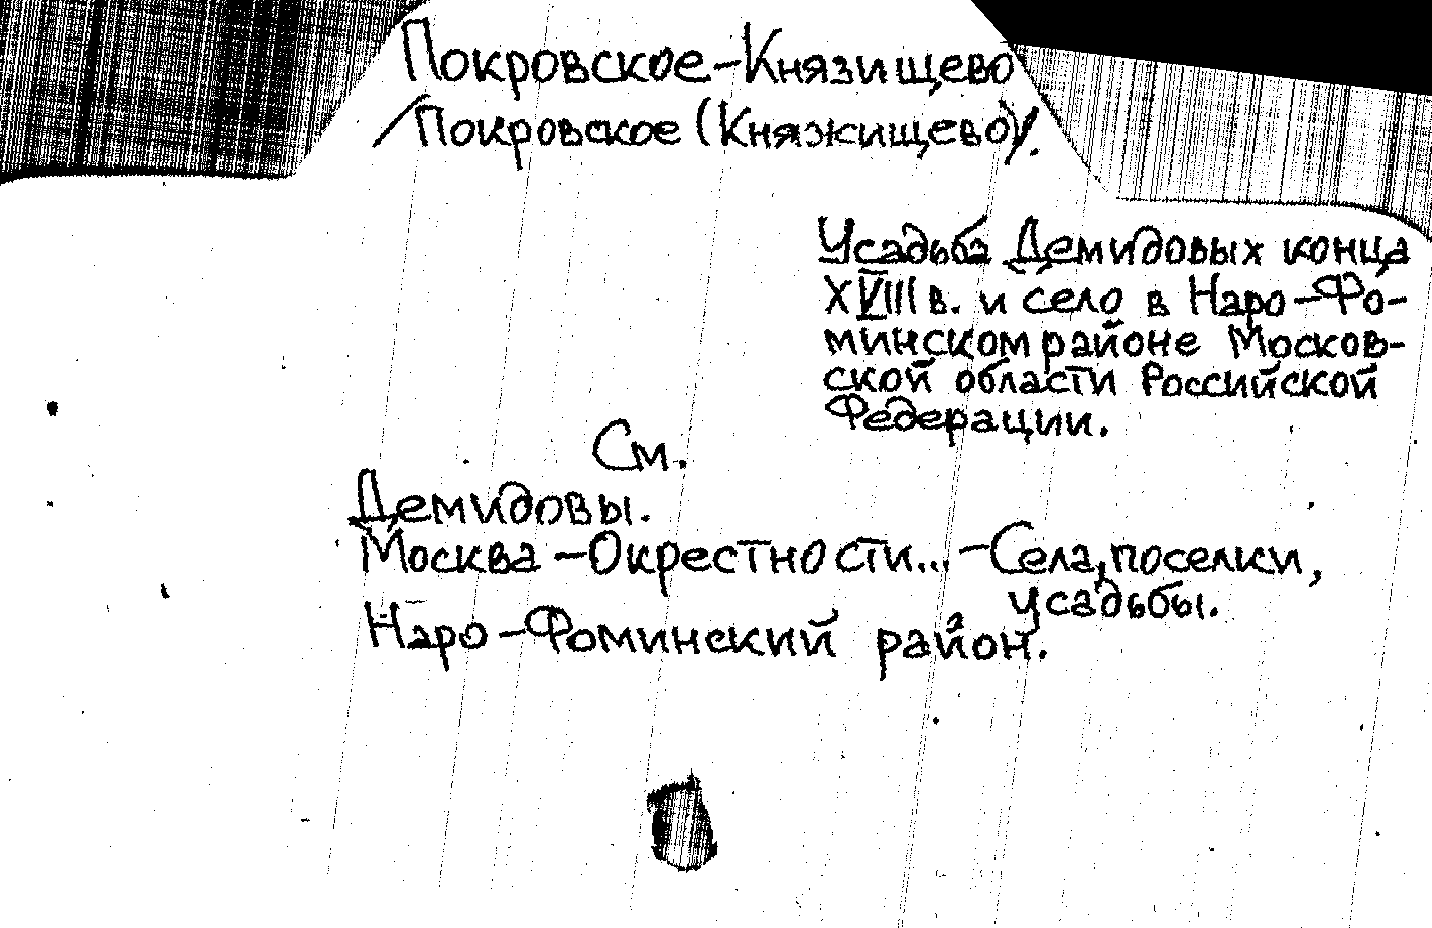 Покровское-Князищево
/Покровское (Княжищево)/.
Усадьба Демидовых конца
XVIII в. и село в Наро-Фо-
минском районе Москов-
ской области Российской
Федерации.
См.
Демидовы.
Москва-Окрестности...-Села, поселки,
усадьбы.
Наро-Фоминский район.